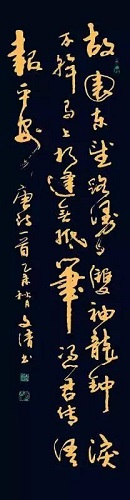 故園東望路漫漫雙袖龍鐘淚
不乾馬上相逢無紙筆憑君傳語
報平安 唐詩一首 文清書